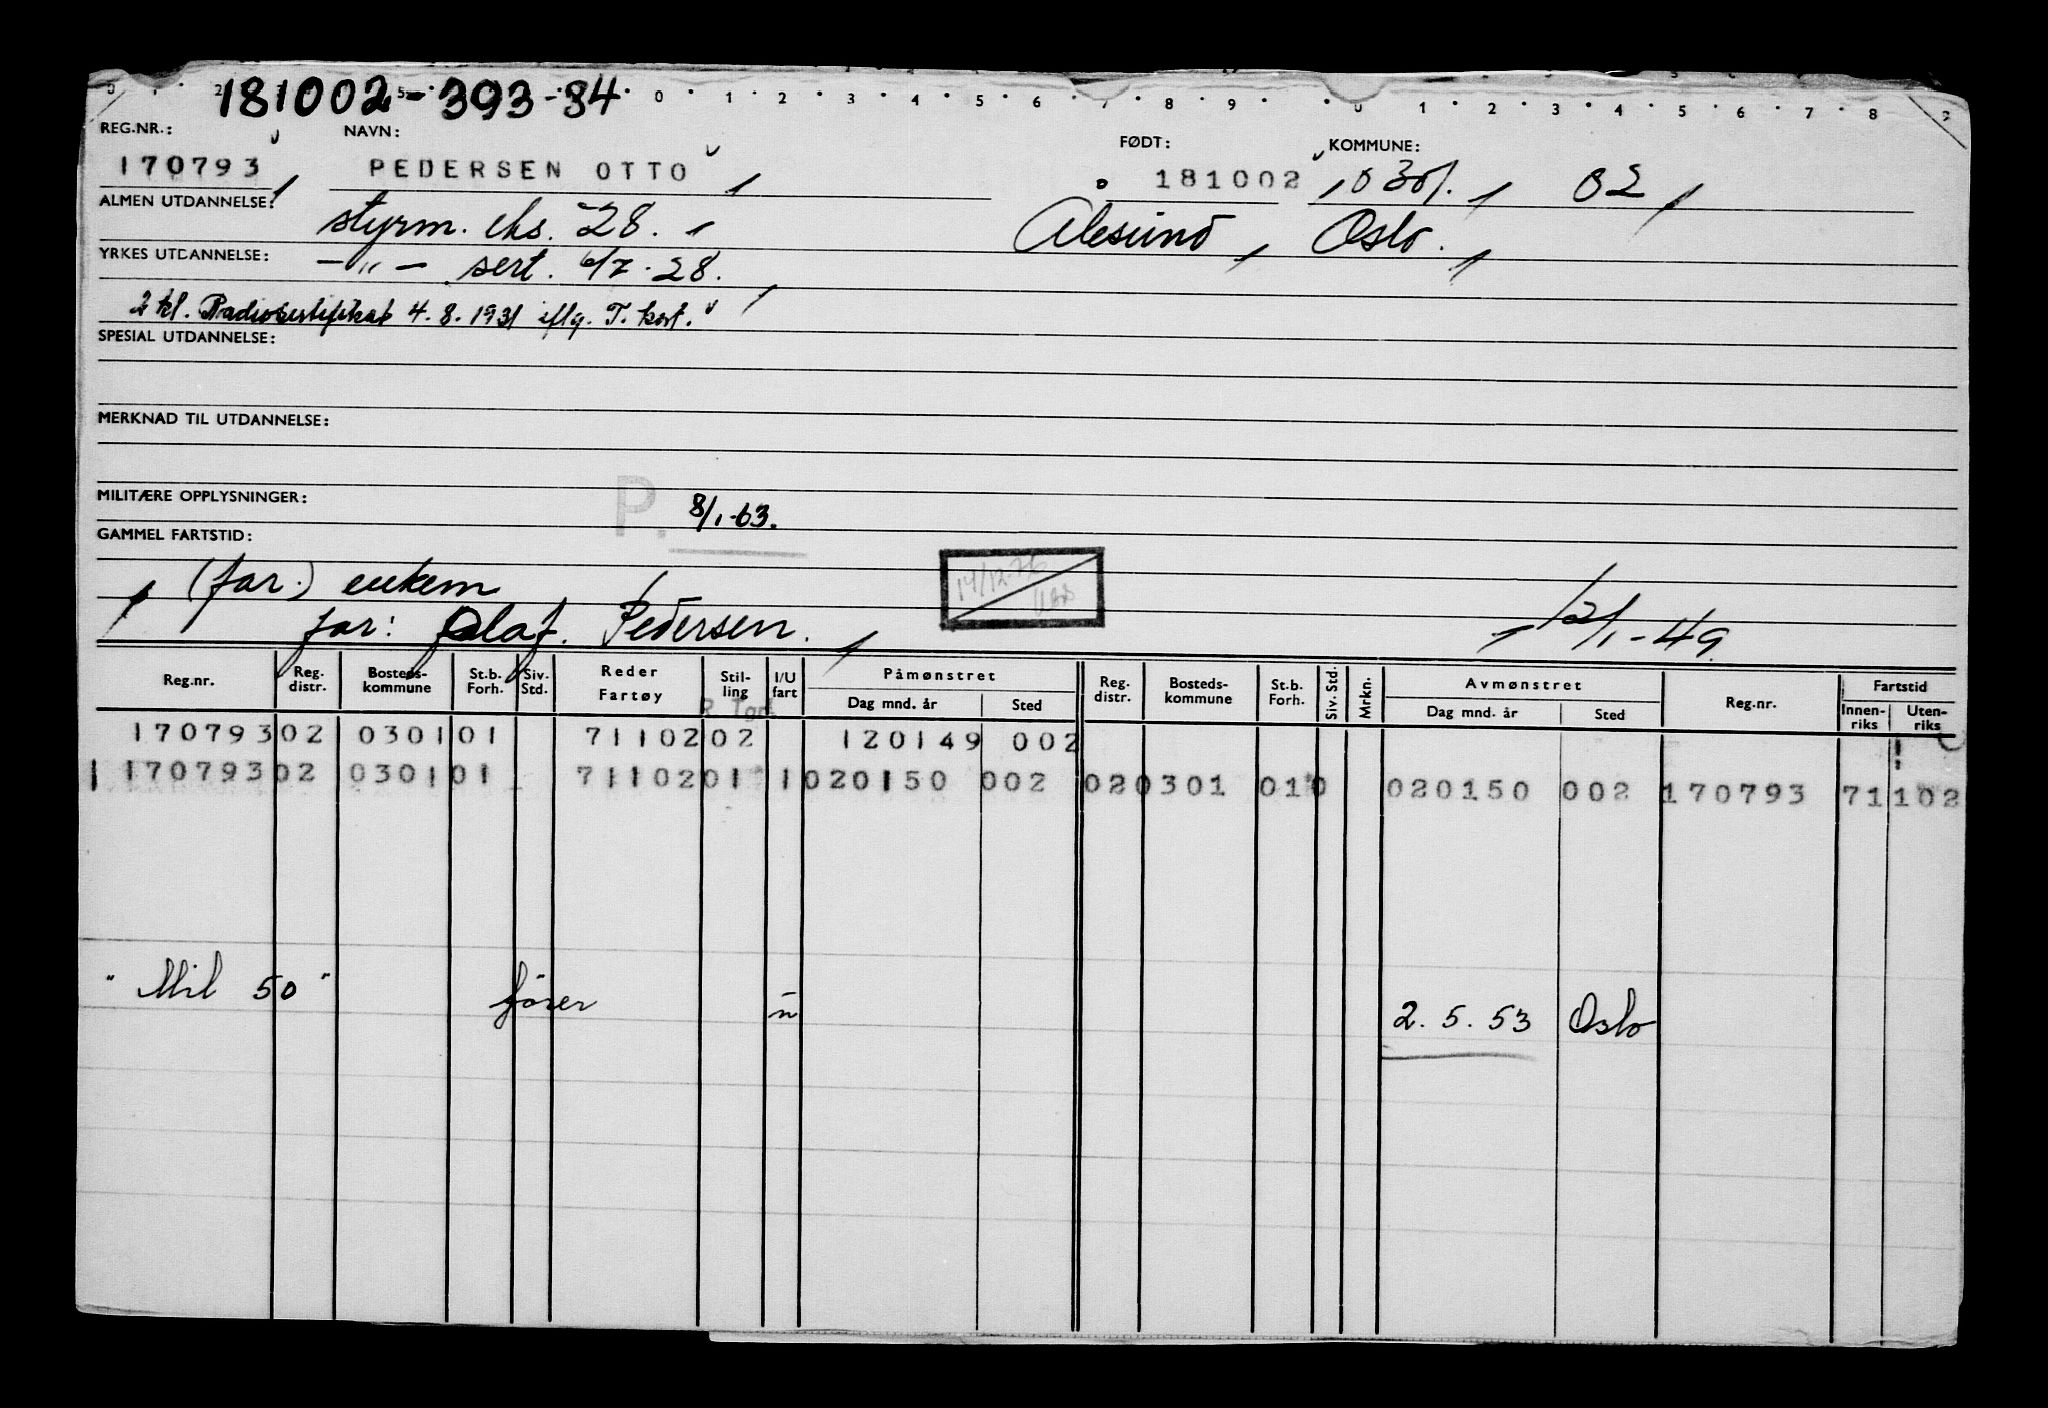 181002-393-84
REG.NR.: NAVN: FØDT: KOMMUNE:
170793 PEDERSEN OTTO 181002 0301. 02
ALMEN UTDANNELSE: styrm. eks. -28. Ålesund, Oslo.
YRKES UTDANNELSE: -"- sert. 6/7-28.
2 kl. Radiosertifikat 4.8.1931 iflg. T. kort.
SPESIAL UTDANNELSE:
MERKNAD TIL UTDANNELSE:
MILITÆRE OPPLYSNINGER: P. 8/1-63.
GAMMEL FARTSTID:
(far.) enkem 14/12-76
far: Olaf. Pedersen. 12/1-49
Reg.nr. Reg. distr. Bosteds-kommune St.b. Forh. Siv. Std. Reder Fartøy Stil-ling I/U fart Påmønstret Dag mnd. år Sted Reg. distr. Bosteds-kommune St.b. Forh. Siv. Std. Mrkn. Avmønstret Dag mnd. år Sted Reg.nr. Fartstid Innen-riks Uten-riks
170793 02 0301 01 71102 02 120149 002
1 170793 02 0301 01 71102 01 1 020150 002 02 0301 01 0 020150 002 170793 71 102
"Mil 50" fører u 2.5.53 Oslo